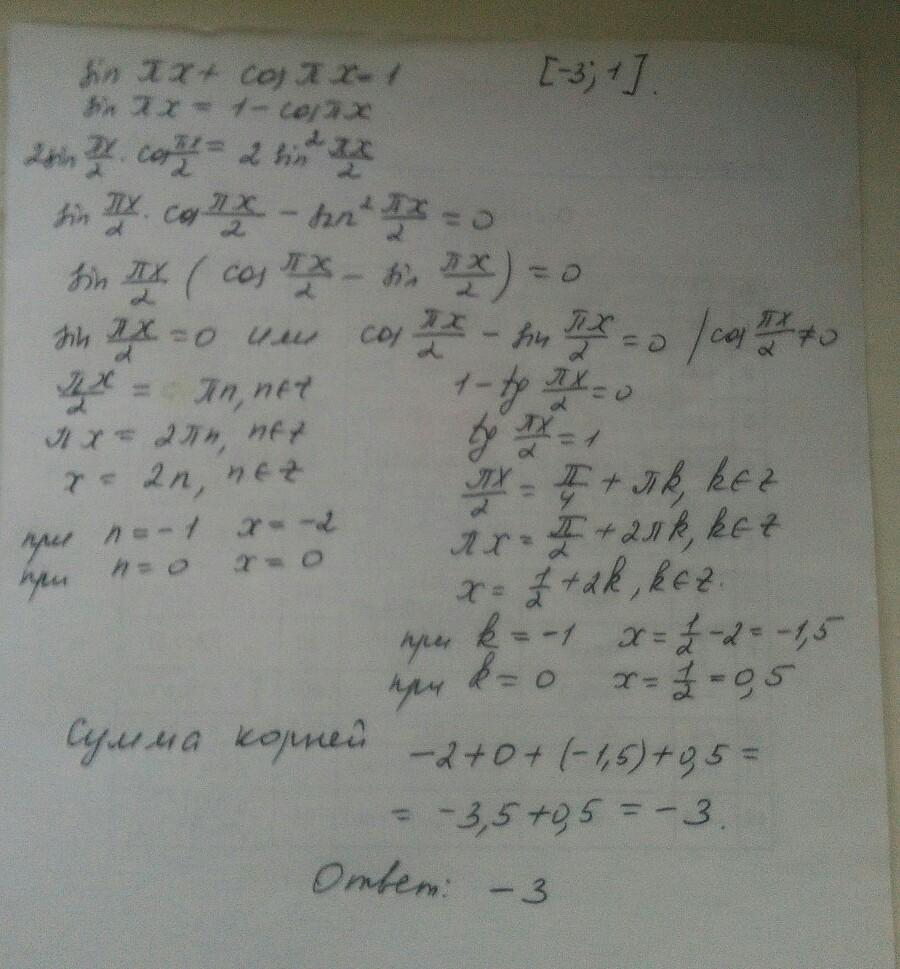 sin πx + cos πx = 1 [-3; 1].
sin πx = 1 - cos πx
2sin πx/2 · cos πx/2 = 2 sin² πx/2
sin πx/2 · cos πx/2 - sin² πx/2 = 0
sin πx/2 ( cos πx/2 - sin πx/2 ) = 0
sin πx/2 = 0 или cos πx/2 - sin πx/2 = 0 / cos πx/2 ≠ 0
πx/2 = πn, n∈z
πx = 2πn, n∈z
x = 2n, n∈z
при n = -1 x = -2
при n = 0 x = 0
1 - tg πx/2 = 0
tg πx/2 = 1
πx/2 = π/4 + πk, k∈z
πx = π/2 + 2πk, k∈z
x = 1/2 + 2k, k∈z.
при k = -1 x = 1/2 - 2 = -1,5
при k = 0 x = 1/2 = 0,5
Сумма корней -2 + 0 + (-1,5) + 0,5 =
= -3,5 + 0,5 = -3.
Ответ: -3